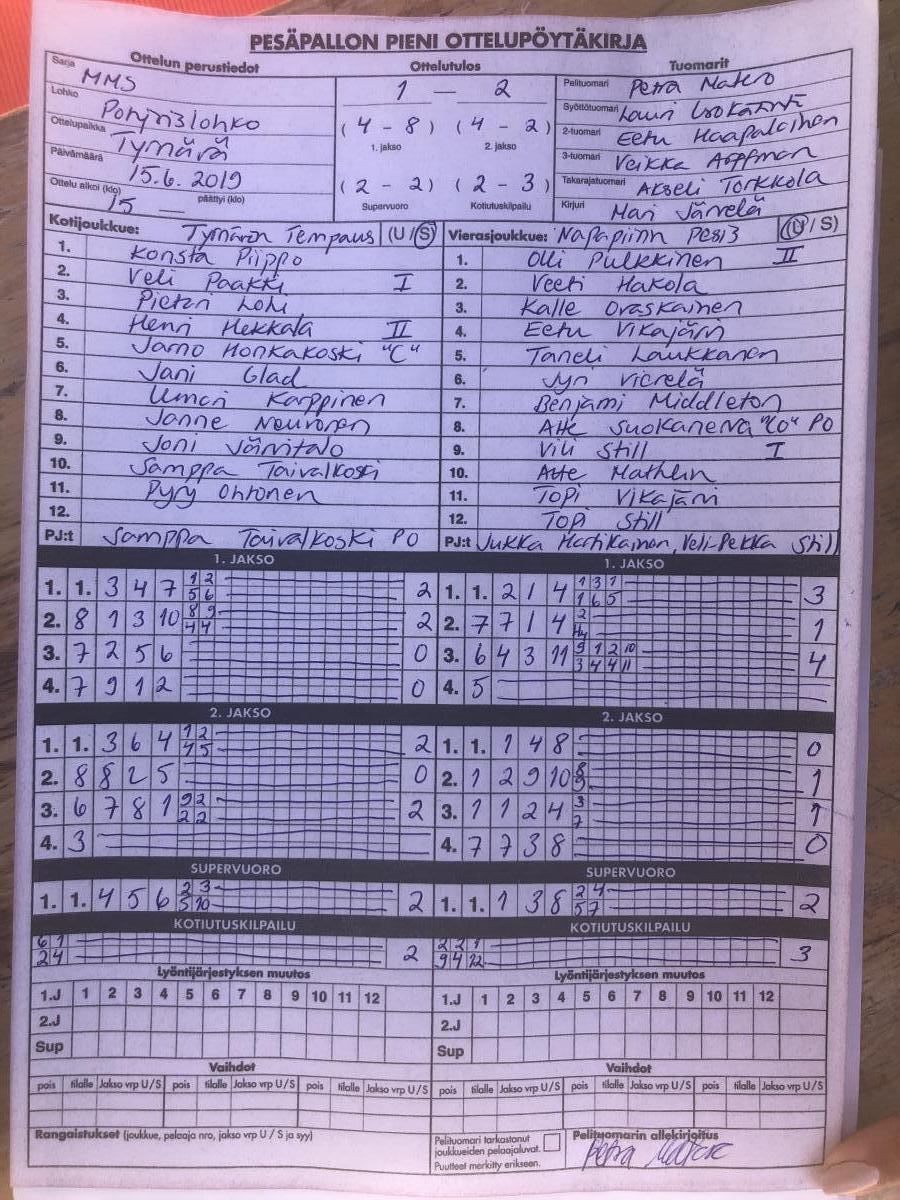 PESÄPALLON PIENI OTTELUPÖYTÄKIRJA
Ottelun perustiedot
Sarja MMS
Lohko Pohjoislohko
Ottelupaikka Tymärä
Päivämäärä 15.6. 2019
Ottelu alkoi (klo) 15 — päättyi (klo)
Ottelutulos
1 — 2
(4 - 8) (4 - 2)
1. jakso 2. jakso
(2 - 2) (2 - 3)
Supervuoro Kotiutuskilpailu
Tuomarit
Pelituomari Petra Matero
Syöttötuomari Lauri
2-tuomari Eetu Haapalainen
3-tuomari Veikka
Takarajatuomari Akseli Torkkola
Kirjuri Mari Järvelä
Kotijoukkue: Tymärän Tempaus (U/S)
1. Konsta Piippo
2. Veli Paakki I
3. Pietari Lohi
4. Henri Hekkala II
5. Jarno Honkakoski "C"
6. Jani Glad
7. Umari Karppinen
8. Janne Neuvonen
9. Joni Järvitalo
10. Samppa Taivalkoski
11. Pyry Ohtonen
12.
PJ:t Samppa Taivalkoski PO
Vierasjoukkue: Napapiirin Pesis (U/S)
1. Olli Pulkkinen II
2. Veeti Hakola
3. Kalle Oraskainen
4. Eetu Vikajärvi
5. Taneli Laukkanen
6. Jyri Vierelä
7. Benjami Middleton
8. Atte Suokanerva "Co" PO
9. Vili Still I
10. Atte Mathlin
11. Topi Vikajärvi
12. Topi Still
PJ:t Jukka Hartikainen, Veli-Pekka Still
1. JAKSO
1. 1. 3 4 7 1 2 2
5 6
2. 8 1 3 10 8 9 2
4 4
3. 7 2 5 6 0
4. 7 9 1 2 0
1. JAKSO
1. 1. 2 1 4 1 3 1 3
1 6 5
2. 7 7 1 4 2 1
3. 6 4 3 11 9 1 2 10 4
3 4 4 11
4. 5
2. JAKSO
1. 1. 3 6 4 1 2 2
4 5
2. 8 8 2 5 0
3. 6 7 8 1 9 2 2
2 2
4. 3
2. JAKSO
1. 1. 1 4 8 0
2. 1 2 9 10 8 1
9
3. 1 1 2 4 3 1
7
4. 7 7 3 8 0
SUPERVUORO
1. 1. 4 5 6 2 3 2
5 10
SUPERVUORO
1. 1. 1 3 8 2 4 2
5 7
KOTIUTUSKILPAILU
6 1 2
2 4
KOTIUTUSKILPAILU
2 2 1 3
9 4 12
Lyöntijärjestyksen muutos
1.J 1 2 3 4 5 6 7 8 9 10 11 12
2.J
Sup
Lyöntijärjestyksen muutos
1.J 1 2 3 4 5 6 7 8 9 10 11 12
2.J
Sup
Vaihdot
pois tilalle Jakso vrp U/S pois tilalle Jakso vrp U/S pois tilalle Jakso vrp U/S
Vaihdot
pois tilalle Jakso vrp U/S pois tilalle Jakso vrp U/S pois tilalle Jakso vrp U/S
Rangaistukset (joukkue, pelaaja nro, jakso vrp U / S ja syy)
Pelituomari tarkastanut
joukkueiden pelaajaluvat.
Puutteet merkitty erikseen.
Pelituomarin allekirjoitus
Petra Matero